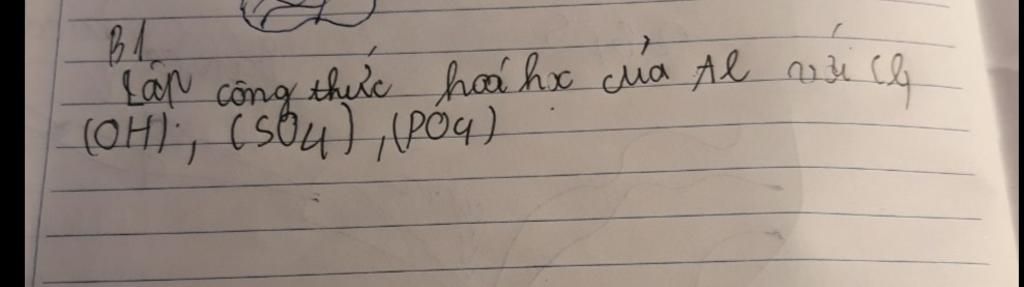 B1
Lập công thức hoá hx của Al với Cl,
(OH); (SO4), (PO4)